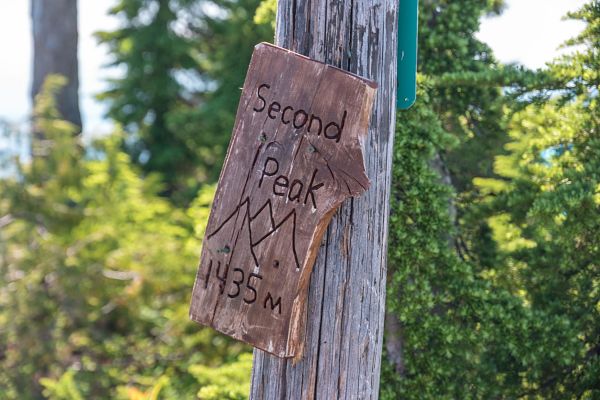 Second
Peak
1435 M